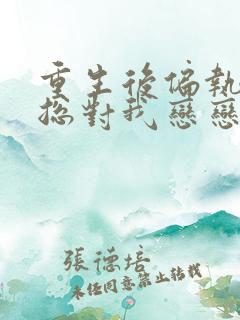 重生後偏執
總對我戀戀
張德培
未經同意禁止轉載